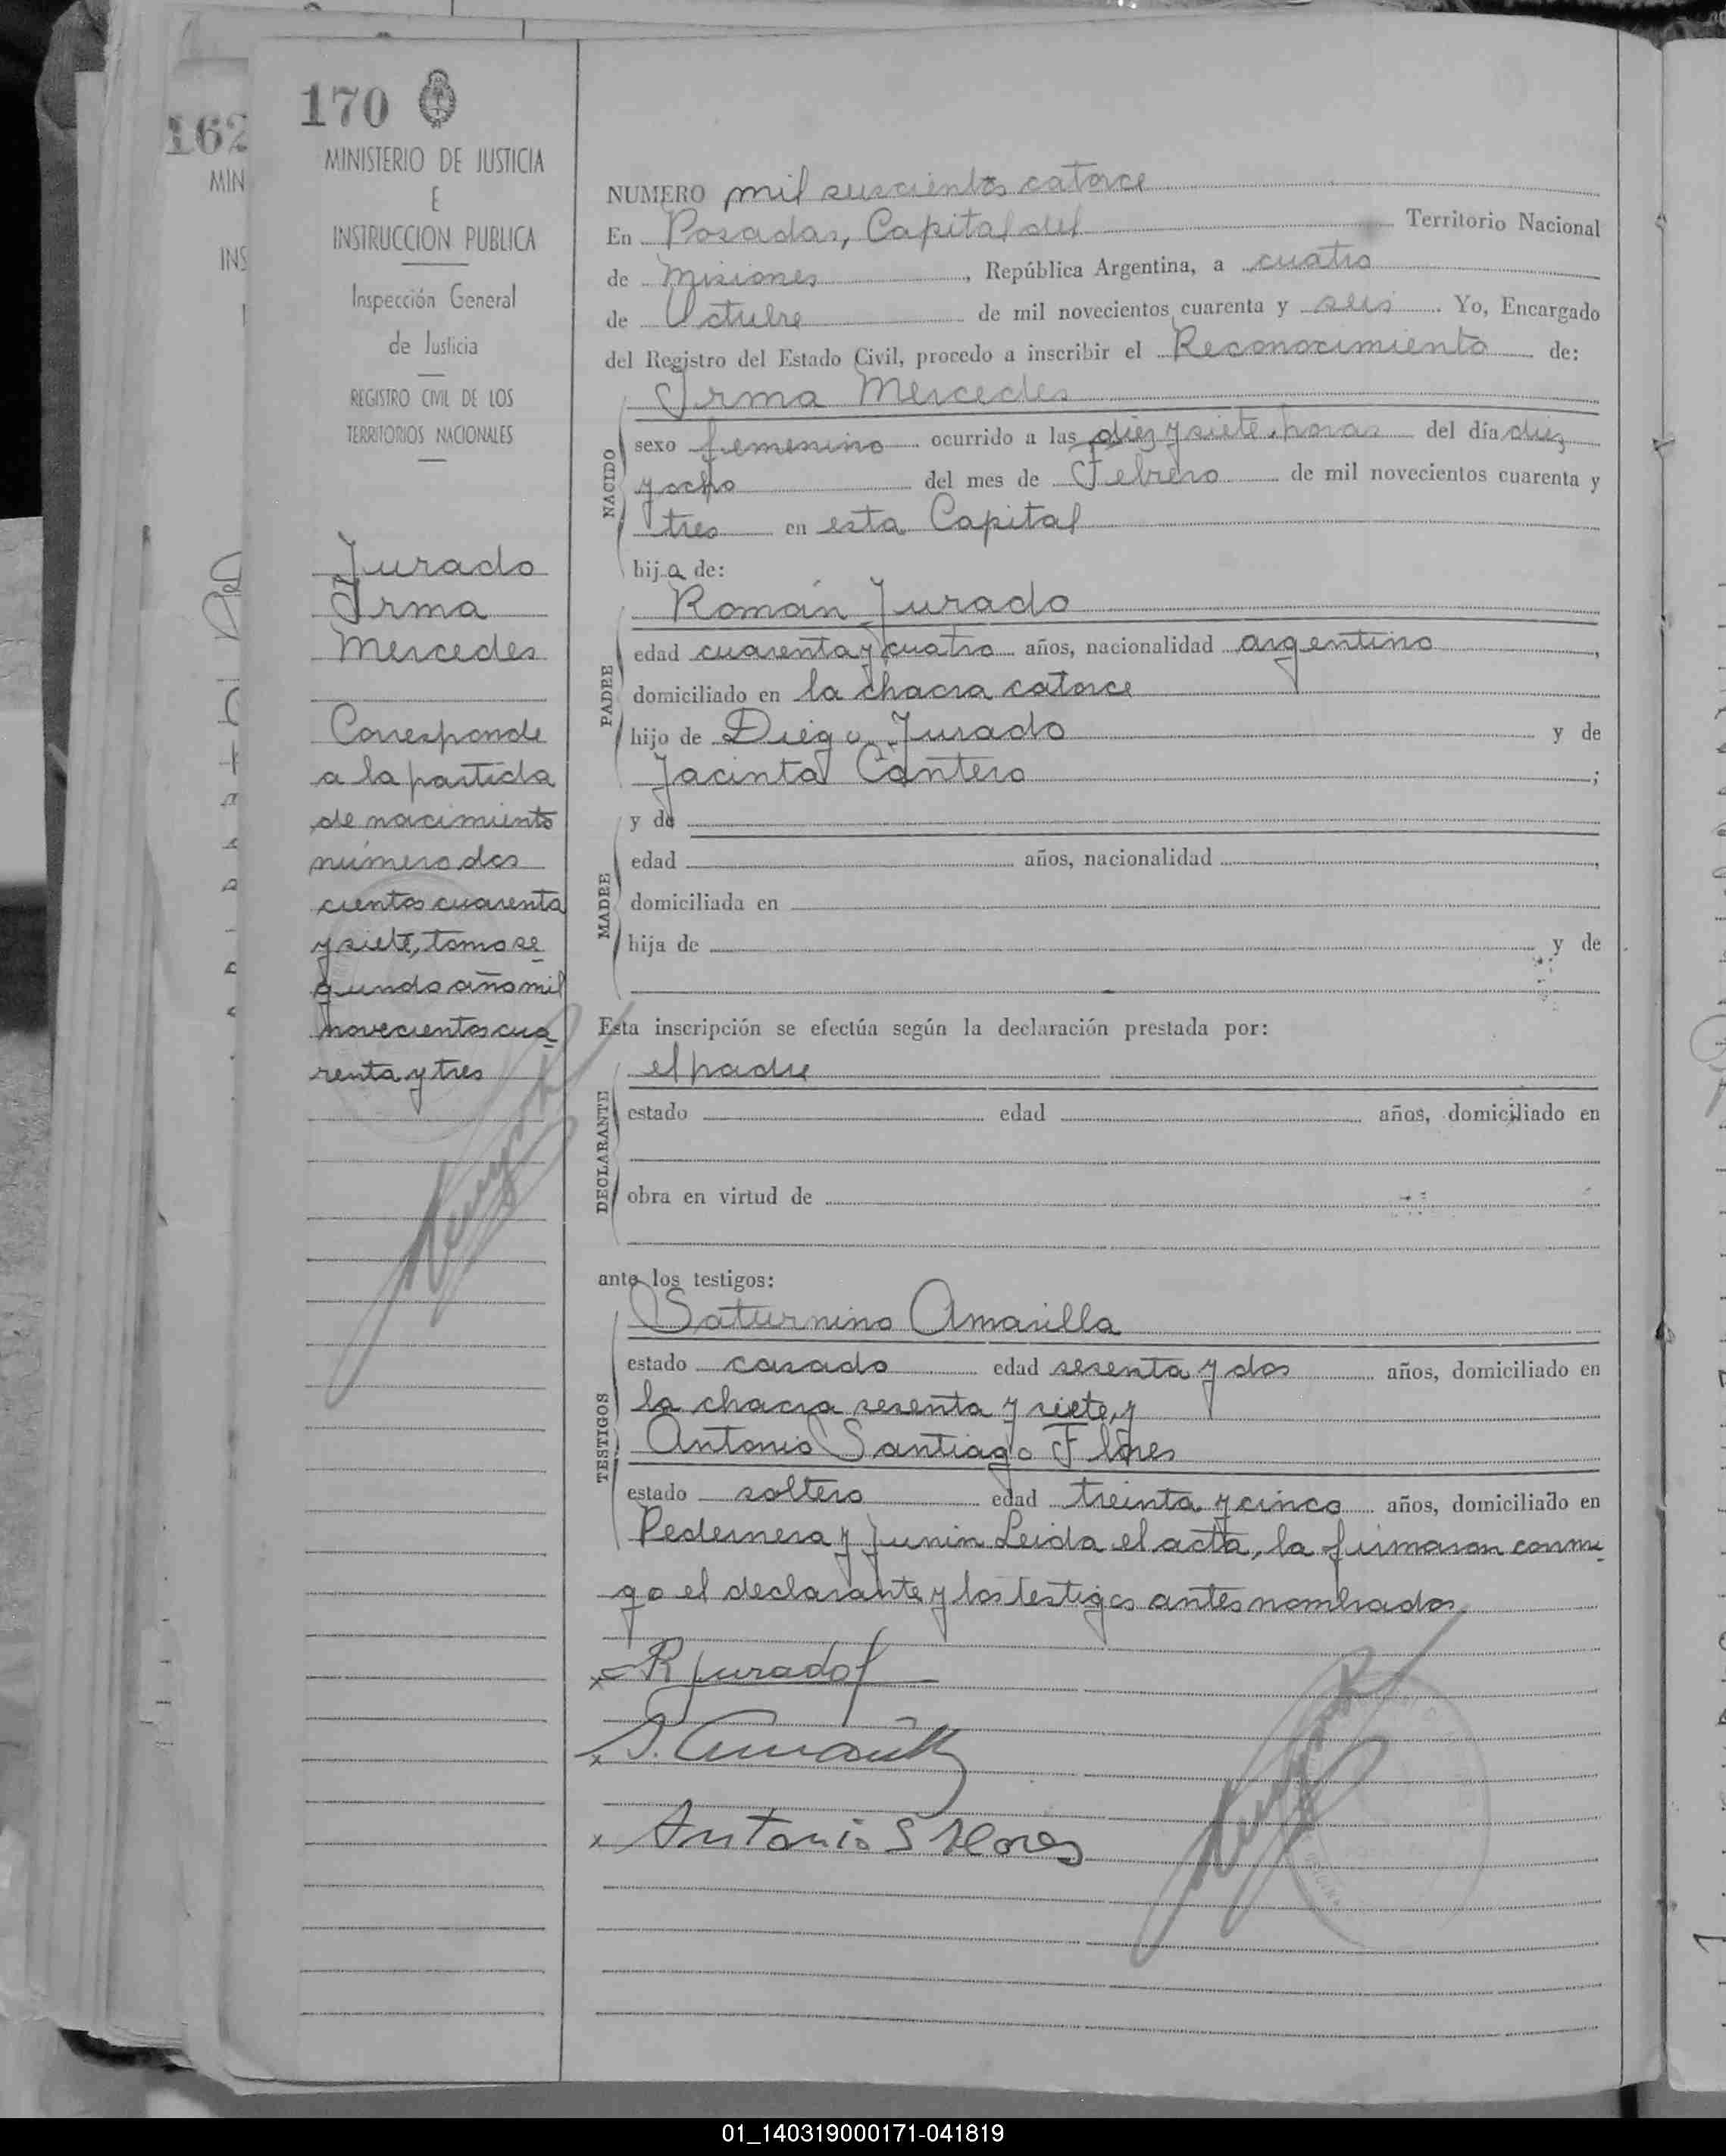 162
MIN
INS
170
MINISTERIO DE JUSTICIA
E
INSTRUCCION PUBLICA
Inspección General
de Justicia
REGISTRO CIVIL DE LOS
TERRITORIOS NACIONALES
Jurado
Irma
Mercedes
Corresponde
a la partida
de nacimiento
número dos
cientos cuarenta
y siete, tomo se
gundo año mil
novecientos cua
renta y tres
NUMERO mil seiscientos catorce
En Posadas, Capital del Territorio Nacional
de Misiones, República Argentina, a cuatro
de Octubre de mil novecientos cuarenta y seis. Yo, Encargado
del Registro del Estado Civil, procedo a inscribir el Reconocimiento de:
Irma Mercedes
NACIDO
sexo femenino ocurrido a las diez y siete horas del día diez
y ocho del mes de Febrero de mil novecientos cuarenta y
tres en esta Capital
hija de:
Román Jurado
PADRE
edad cuarenta y cuatro años, nacionalidad argentino,
domiciliado en la chacra catorce
hijo de Diego Jurado y de
Jacinta Cantero;
y de
MADRE
edad años, nacionalidad,
domiciliada en
hija de y de
Esta inscripción se efectúa según la declaración prestada por:
el padre
DECLARANTE
estado edad años, domiciliado en
obra en virtud de
ante los testigos:
Saturnino Amarilla
TESTIGOS
estado casado edad sesenta y dos años, domiciliado en
la chacra sesenta y siete, y
Antonio Santiago Flores
estado soltero edad treinta y cinco años, domiciliado en
Pedernera y Junin Leida el acta, la firmaron conmi
go el declarante y los testigos antes nombrados.
x R Jurado
x S. Amarilla
x Antonio S Flores
01_140319000171-041819